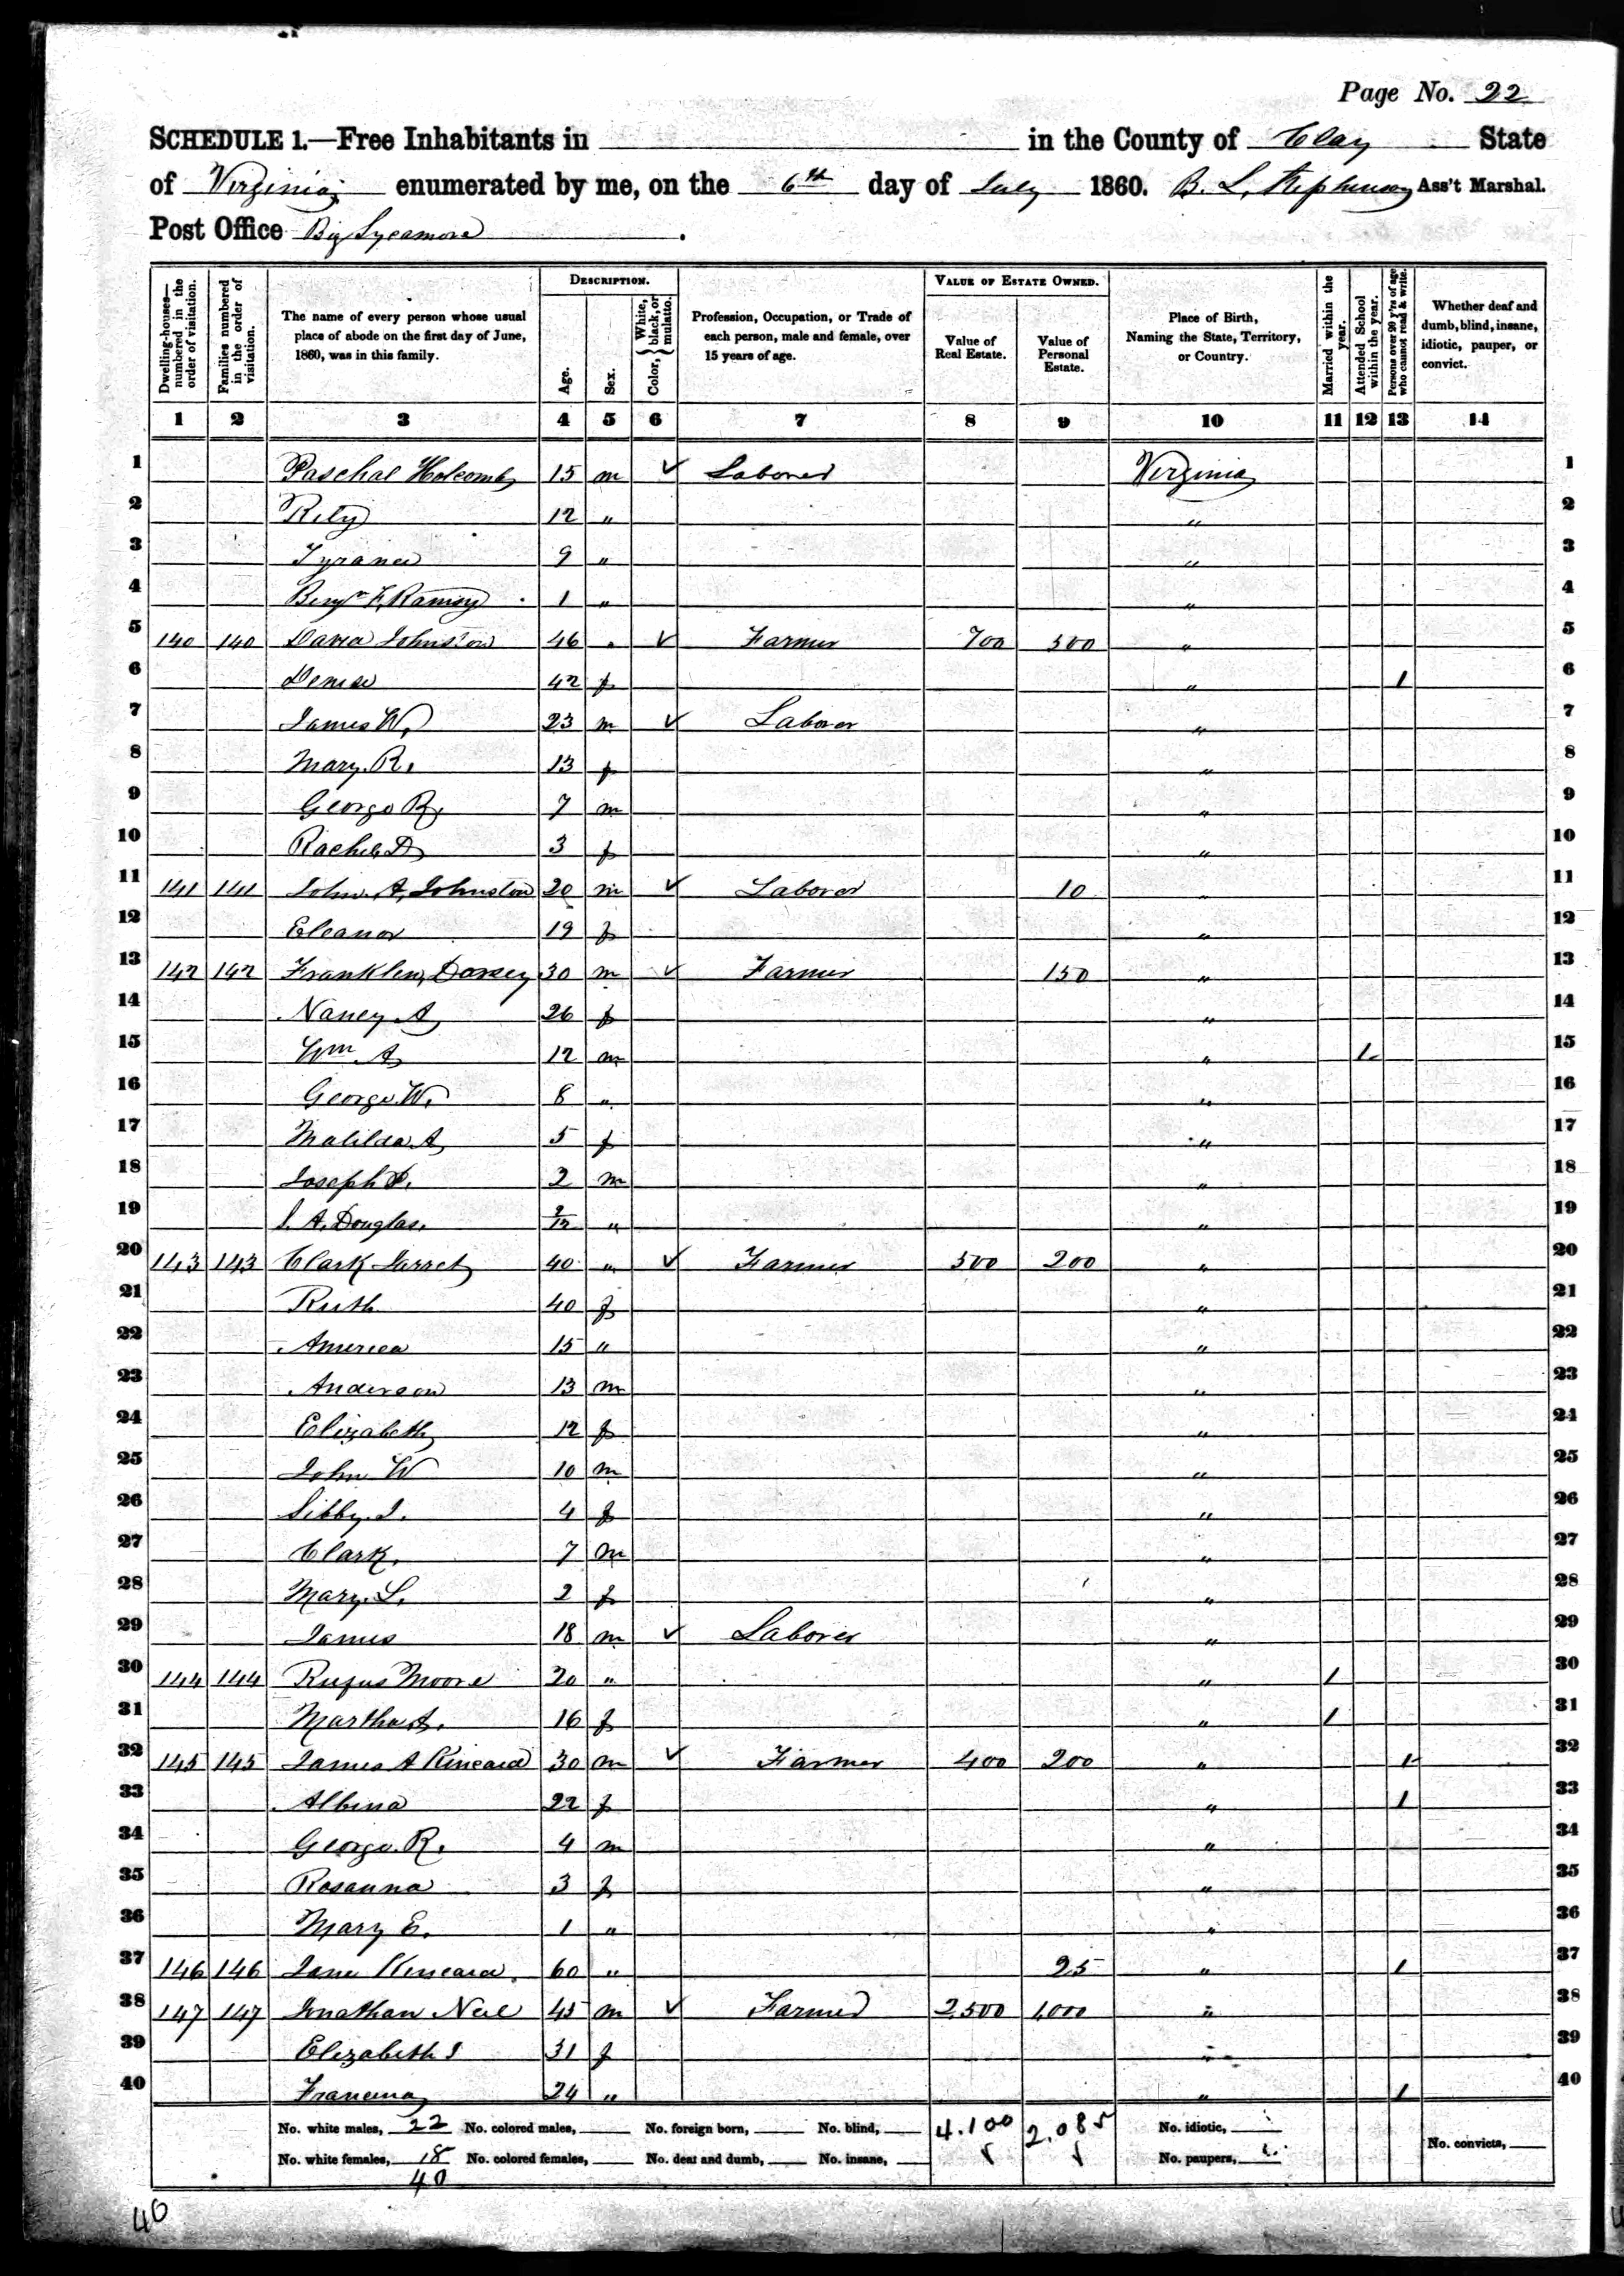 Page No. 22
SCHEDULE 1.—Free Inhabitants in in the County of Clay State
of Virginia enumerated by me, on the 6th day of July 1860. B. L. Stephenson Ass't Marshal.
Post Office Big Sycamore.
Dwelling-houses—numbered in the order of visitation. Families numbered in the order of visitation. The name of every person whose usual place of abode on the first day of June, 1860, was in this family. DESCRIPTION. Age. Sex. Color, {White, black, or mulatto. Profession, Occupation, or Trade of each person, male and female, over 15 years of age. VALUE OF ESTATE OWNED. Value of Real Estate. Value of Personal Estate. Place of Birth, Naming the State, Territory, or Country. Married within the year. Attended School within the year. Persons over 20 y'rs of age who cannot read & write. Whether deaf and dumb, blind, insane, idiotic, pauper, or convict.
1 2 3 4 5 6 7 8 9 10 11 12 13 14
1 Paschal Holcomb 15 m ✓ Laborer Virginia 1
2 Rily 12 " " 2
3 9 " " 3
4 Benjn F. Ramsy 1 " " 4
5 140 140 David Johnston 46 " ✓ Farmer 700 500 " 5
6 42 f " 1 6
7 James W. 23 m ✓ Laborer " 7
8 Mary R. 13 f " 8
9 George R. 7 m " 9
10 Rachel D 3 f " 10
11 141 141 John A. Johnston 20 m ✓ Laborer 10 " 11
12 Eleanor 19 f " 12
13 142 142 Franklin Dorsey 30 m ✓ Farmer 150 " 13
14 Nancy A 26 f " 14
15 Wm. A 12 m " 1 15
16 George W. 8 " " 16
17 Matilda A 5 f " 17
18 Joseph 2 m " 18
19 S. A. Douglas. 2/12 " " 19
20 143 143 Clark Jarret 40 " ✓ Farmer 500 200 " 20
21 Ruth 40 f " 21
22 America 15 " " 22
23 Anderson 13 m " 23
24 Elizabeth 12 f " 24
25 John W 10 m " 25
26 Sibby J. 4 f " 26
27 Clark. 7 m " 27
28 Mary L. 2 f " 28
29 James 18 m ✓ Laborer " 29
30 144 144 Rufus Moore 20 " " 1 30
31 Martha A. 16 f " 1 31
32 145 145 James A Kincaid 30 m ✓ Farmer 400 200 " 1 32
33 Albina 22 f " 1 33
34 George R. 4 m " 34
35 Rosanna 3 f " 35
36 Mary E. 1 " " 36
37 146 146 Jane Kincaid. 60 " 25 " 1 37
38 147 147 Jonathan Neil 45 m ✓ Farmer 2,500 1,000 " 38
39 Elizabeth J 31 f " 39
40 24 " " 1 40
No. white males, 22 No. colored males, No. foreign born, No. blind, 4.100 2.085 No. idiotic,
No. white females, 18 No. colored females, No. deaf and dumb, No. insane, No. paupers, No. convicts,
40
40